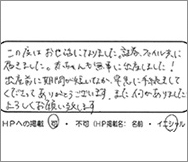 この度はお世話になりました。証券、ファイル共に
届きました。赤ちゃんも無事に出産しました!
出産前に期間が短いなか、早急に手続きまして
くださってありがとうございます。また何かありましたら
よろしくお願い致します
HPへの掲載 可 ・ 不可 (HP掲載名: 名前 ・ イニシャル